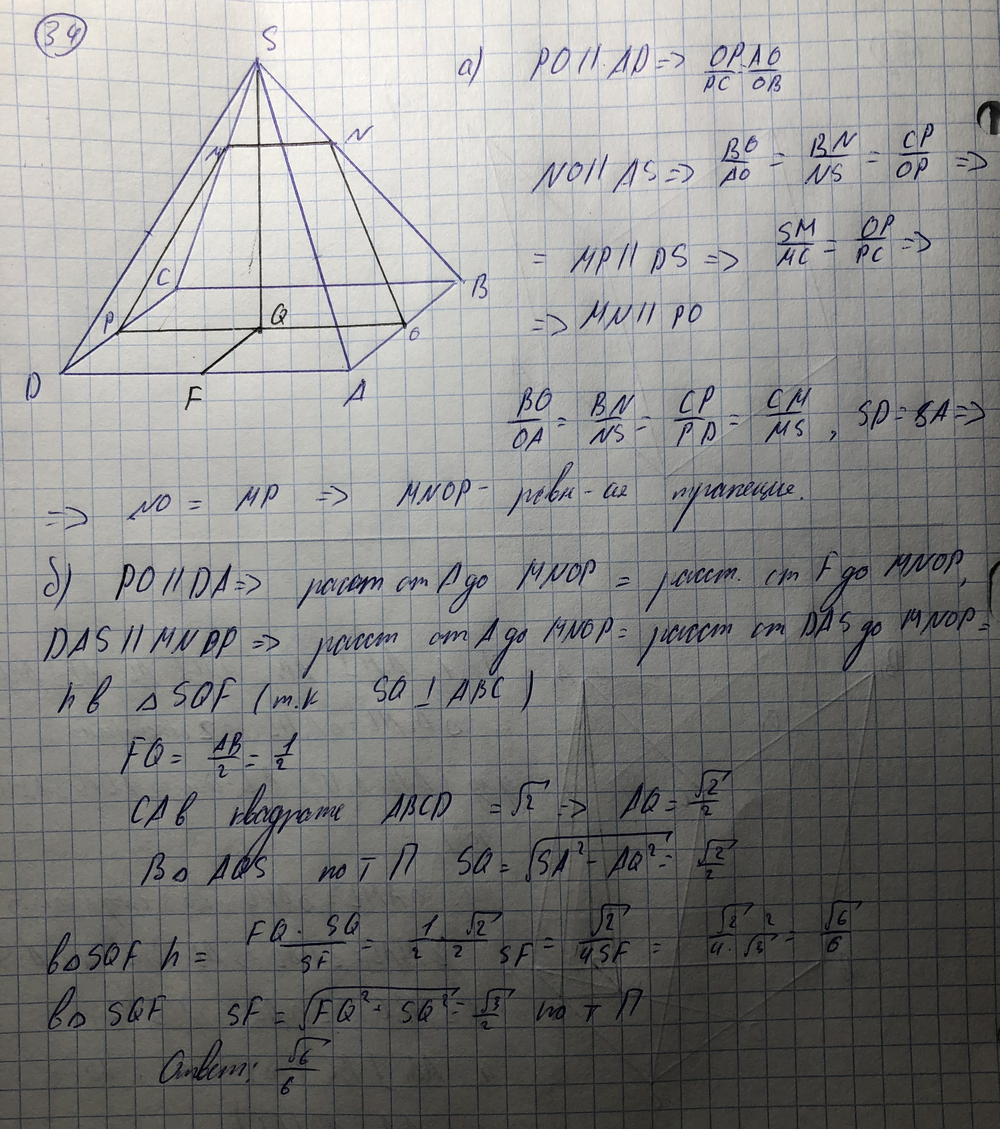 34
S
M
N
C
B
P
Q
O
D
F
A
а) PO || AD => OP/PC = AO/OB
NO || AS => BO/AO = BN/NS = CP/OP =>
= MP || DS => SM/MC = OP/PC =>
=> MN || PO
BO/OA = BN/NS = CP/PD = CM/MS , SD = SA =>
=> NO = MP => MNOP - равн-ая трапеция.
б) PO || DA => расст от A до MNOP = расст. от F до MNOP,
DAS || MNOP => расст от A до MNOP = расст от DAS до MNOP =
h в △ SQF ( т.к SQ ⊥ ABC )
FQ = AB/2 = 1/2
CA в квадрате ABCD = √2 => AQ = √2/2
В △ AQS по т П SQ = √(SA² - AQ²) = √2/2
в △ SQF h = FQ · SQ/SF = 1/2 · √2/2 SF = √2/4SF = √2 · 2/4 · √3 = √6/6
в △ SQF SF = √(FQ² + SQ²) = √3/2 по т П
Ответ: √6/6